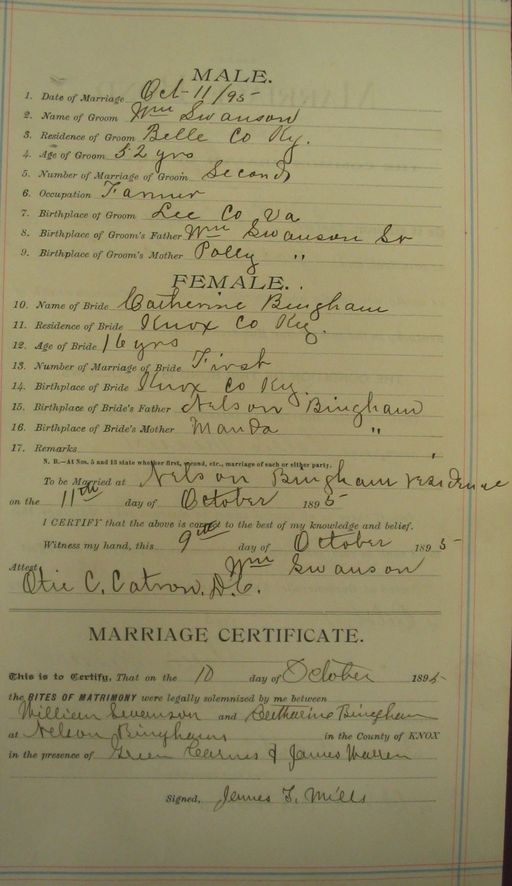 MALE.
1. Date of Marriage Oct-11/95-
2. Name of Groom Wm Swanson
3. Residence of Groom Belle Co Ky.
4. Age of Groom 52 yrs
5. Number of Marriage of Groom Second
6. Occupation Farmer
7. Birthplace of Groom Lee Co Va
8. Birthplace of Groom's Father Wm Swanson Sr
9. Birthplace of Groom's Mother Polly "
FEMALE.
10. Name of Bride Catherine Bingham
11. Residence of Bride Knox Co Ky.
12. Age of Bride 16 yrs
13. Number of Marriage of Bride First
14. Birthplace of Bride Knox Co Ky.
15. Birthplace of Bride's Father Nelson Bingham
16. Birthplace of Bride's Mother Manda "
17. Remarks
N. B.—At Nos. 5 and 13 state whether first, second, etc., marriage of each or either party.
To be Married at Nelson Bingham residence
on the 11th day of October 1895
I CERTIFY that the above is correct to the best of my knowledge and belief.
Witness my hand, this 9th day of October 1895-
Attest Wm Swanson
Otie C. Catron. D.C.
MARRIAGE CERTIFICATE.
This is to Certify, That on the 10 day of October 1895
the RITES OF MATRIMONY were legally solemnized by me between
William Swanson and Catharine Bingham
at Nelson Binghams in the County of KNOX
in the presence of Green Carnes & James Warren
Signed, James T. Mills